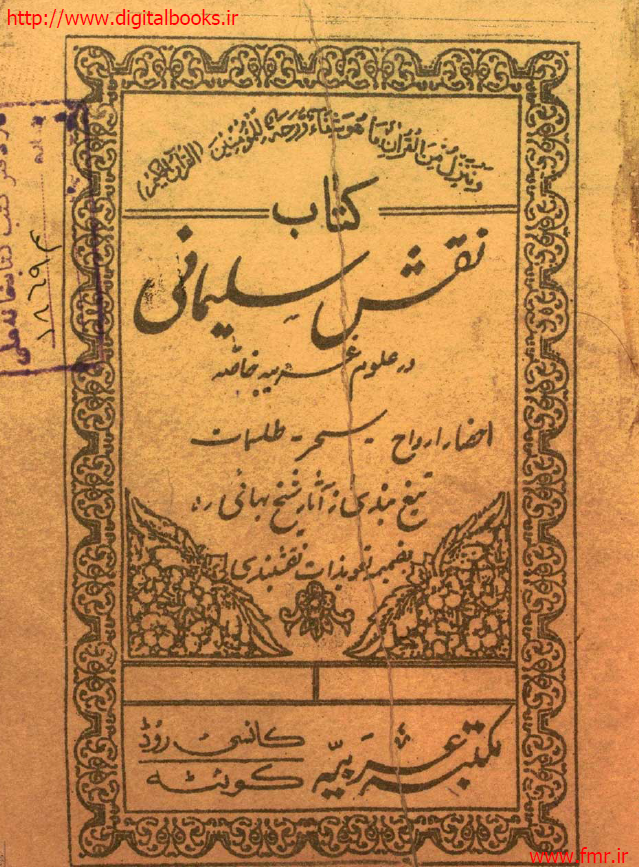 http://www.digitalbooks.ir
وننزل من القرآن ما هو شفاء ورحمة للمؤمنين (القرآن الحکیم)
کتاب
نقش سلیمانی
در علوم غریبه خاصه
احضار ارواح - سحر - طلسمات
تیغ بندی از آثار شیخ بهائی ره
بضمیمه تعویذات نقشبندی
مکتبہ عربیّہ
کانسی روڈ
کوئٹہ
۱۸۶۹۴
www.fmr.ir